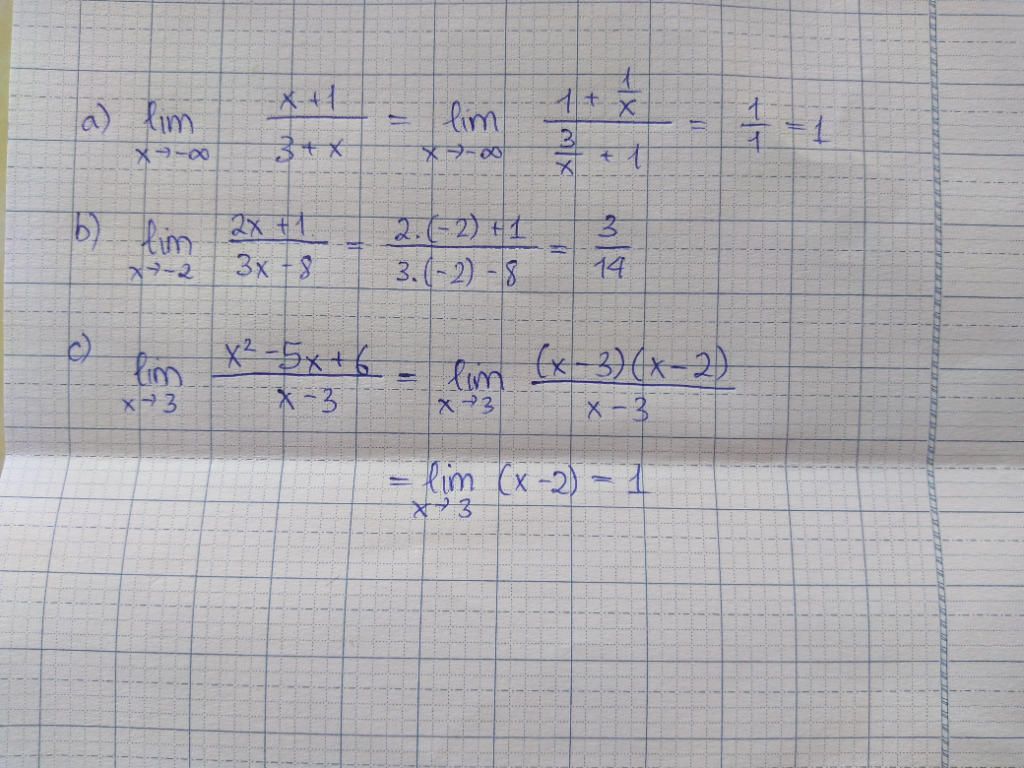 a) lim x→-∞ (x+1)/(3+x) = lim x→-∞ (1 + 1/x)/(3/x + 1) = 1/1 = 1
b) lim x→-2 (2x+1)/(3x-8) = (2.(-2)+1)/(3.(-2)-8) = 3/14
c) lim x→3 (x²-5x+6)/(x-3) = lim x→3 ((x-3)(x-2))/(x-3)
= lim x→3 (x-2) = 1